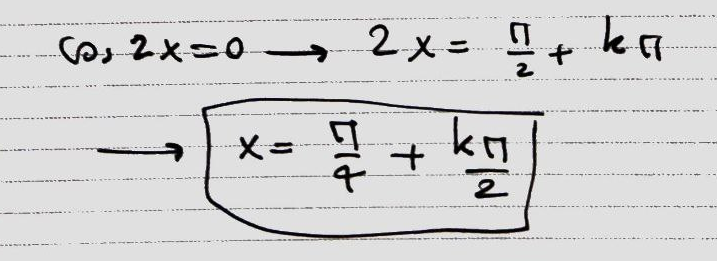 cos 2x=0 → 2x = π/2 + kπ
→ x = π/4 + kπ/2